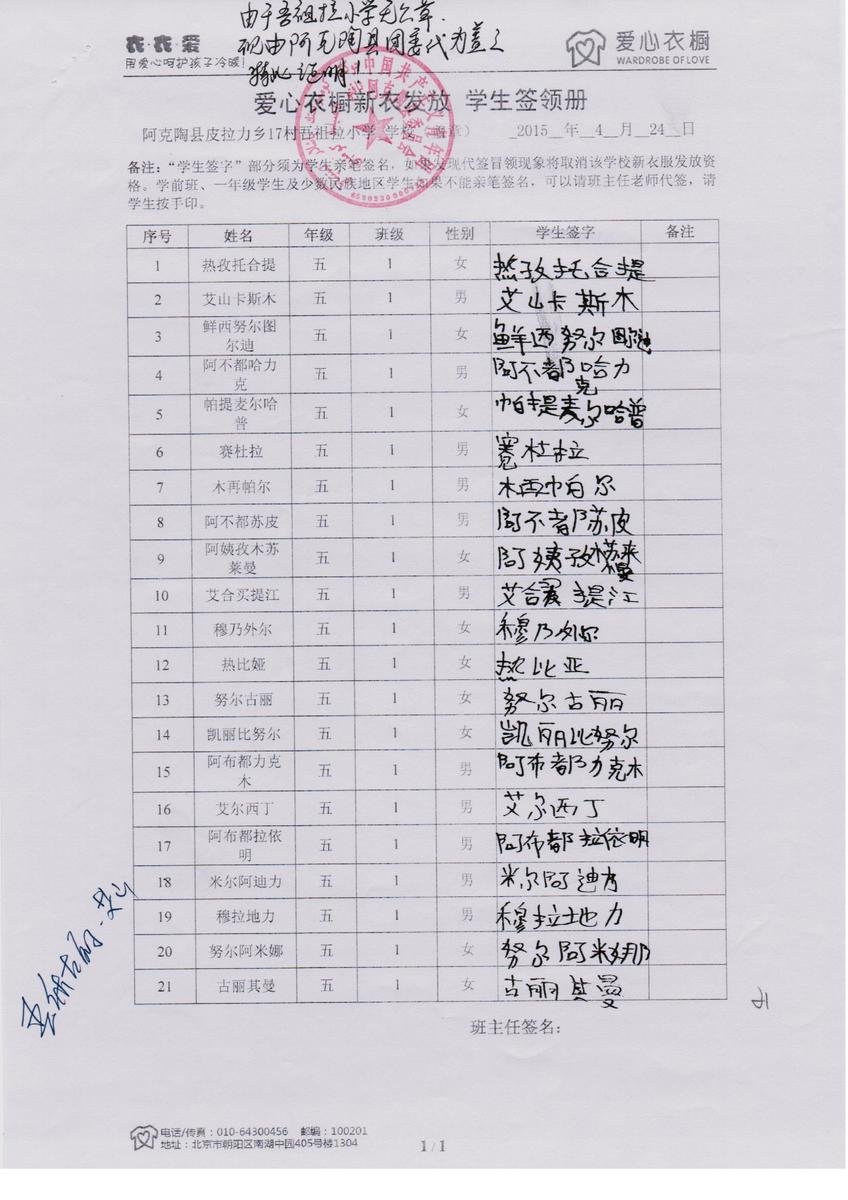 由于吾祖拉小学无公章.
现由阿克陶县团委代为盖之
特此证明!
衣·衣·爱
用爱心呵护孩子冷暖!
爱心衣橱
WARDROBE OF LOVE
爱心衣橱新衣发放 学生签领册
阿克陶县皮拉力乡17村吾祖拉小学 学校 章) _2015_年_4_月_24_日
备注:“学生签字”部分须为学生亲笔签名,如果发现代签冒领现象将取消该学校新衣服发放资
格。学前班、一年级学生及少数民族地区学生如果不能亲笔签名,可以请班主任老师代签,请
学生按手印。
序号 姓名 年级 班级 性别 学生签字 备注
1 热孜托合提 五 1 女 热孜托合提
2 艾山卡斯木 五 1 男 艾山卡斯木
3 鲜西努尔图尔迪 五 1 女 鲜西努尔图尔迪
4 阿不都哈力克 五 1 男 阿不都哈力克
5 帕提麦尔哈普 五 1 女 帕提麦尔哈普
6 赛杜拉 五 1 男 赛杜拉
7 木再帕尔 五 1 男 木再帕尔
8 阿不都苏皮 五 1 男 阿不都苏皮
9 阿姨孜木苏莱曼 五 1 女 阿姨孜木苏来曼
10 艾合买提江 五 1 男 艾合买提江
11 穆乃外尔 五 1 女 穆乃外尔
12 热比娅 五 1 女 热比亚
13 努尔古丽 五 1 女 努尔古丽
14 凯丽比努尔 五 1 女 凯丽比努尔
15 阿布都力克木 五 1 男 阿布都力克木
16 艾尔西丁 五 1 男 艾尔西丁
17 阿布都拉依明 五 1 男 阿布都拉依明
18 米尔阿迪力 五 1 男 米尔阿迪力
19 穆拉地力 五 1 男 穆拉地力
20 努尔阿米娜 五 1 女 努尔阿米娜
21 古丽其曼 五 1 女 古丽其曼
班主任签名:
电话/传真:010-64300456 邮编:100201
地址:北京市朝阳区南湖中园405号楼1304
1 / 1